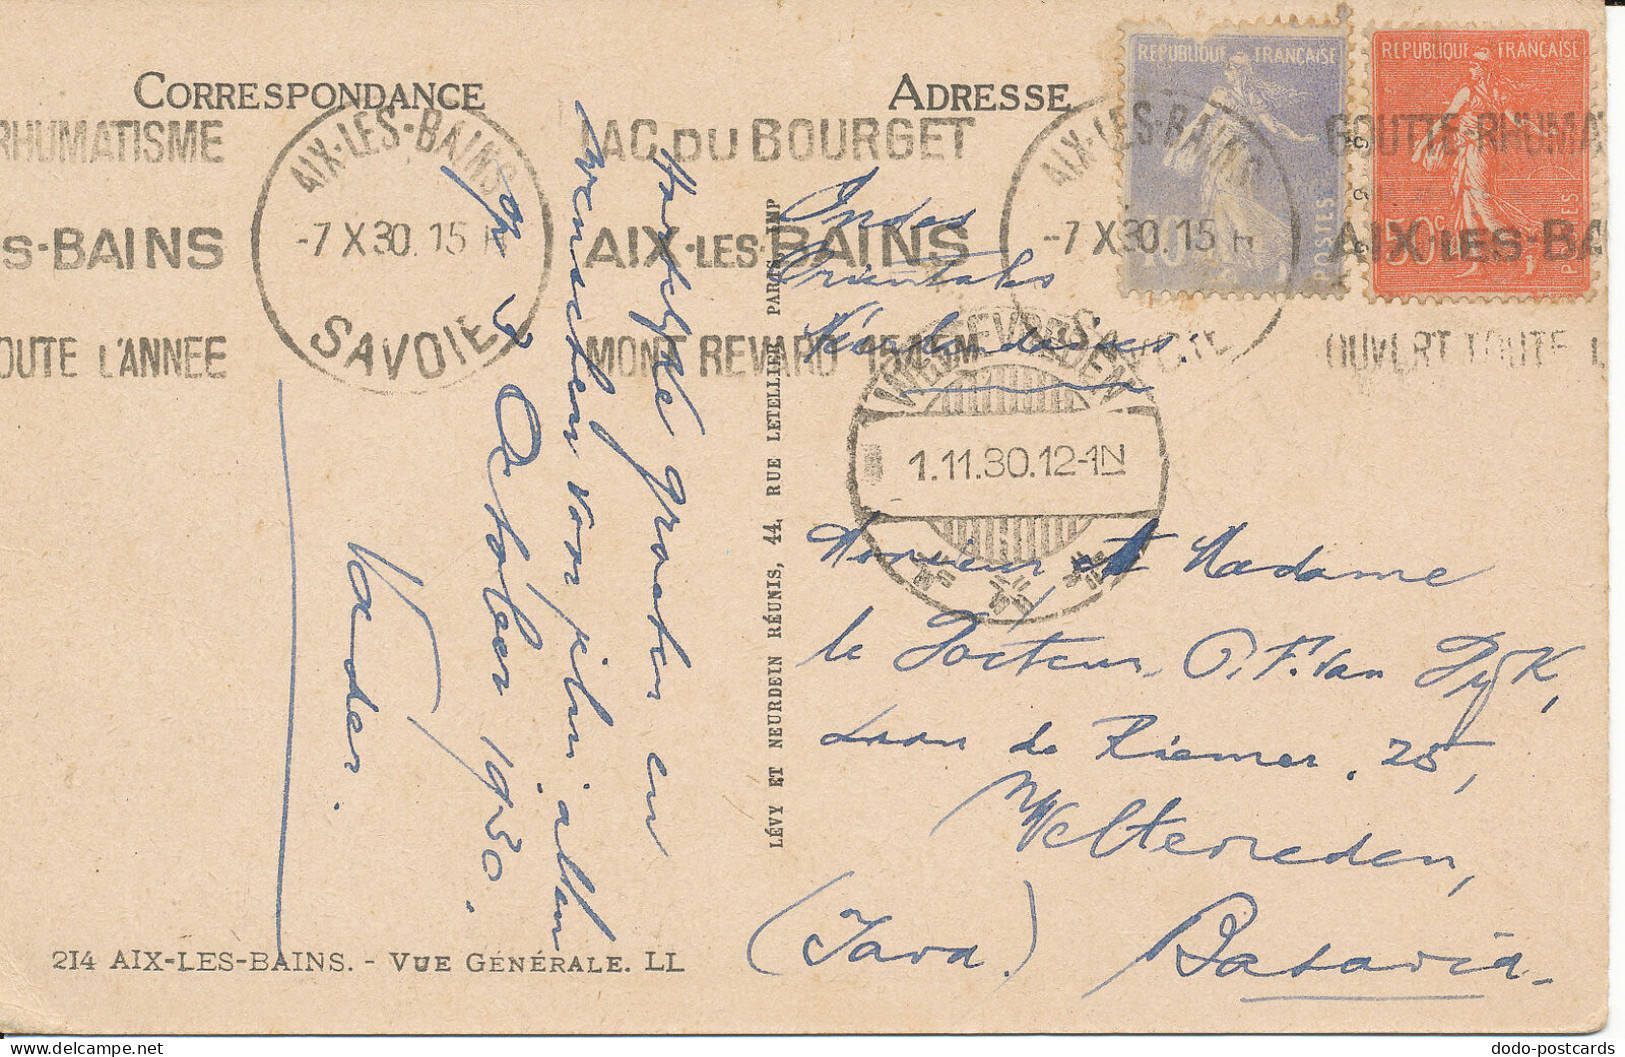 CORRESPONDANCE
ADRESSE
RHUMATISME
S-BAINS
OUTE L'ANNEE
AIX-LES-BAINS
-7 X 30. 15 H
SAVOIE
LAC DU BOURGET
AIX-LES-BAINS
MONT REVARD 1545M
AIX-LES-BAINS
-7 X 30. 15 H
REPUBLIQUE FRANÇAISE
40c
POSTES
REPUBLIQUE FRANÇAISE
50c
POSTES
GOUTTE-RHUMA
AIX-LES-BA
OUVERT TOUTE L
WELTEVREDEN
1.11.30.12-1N
Hartelijke groeten en
wenschen voor jelui allen
op 7 October 1930.
Vader.
LÉVY ET NEURDEIN RÉUNIS, 44, RUE LETELLIER PARIS IMP
Indes
Orientales
Néerlandaises
Monsieur et Madame
le Docteur P. F. Van Dyk,
Laan de Riemer. 25,
Weltevreden,
(Java.) Batavia.
214 AIX-LES-BAINS. - VUE GÉNÉRALE. LL
dodo-postcards